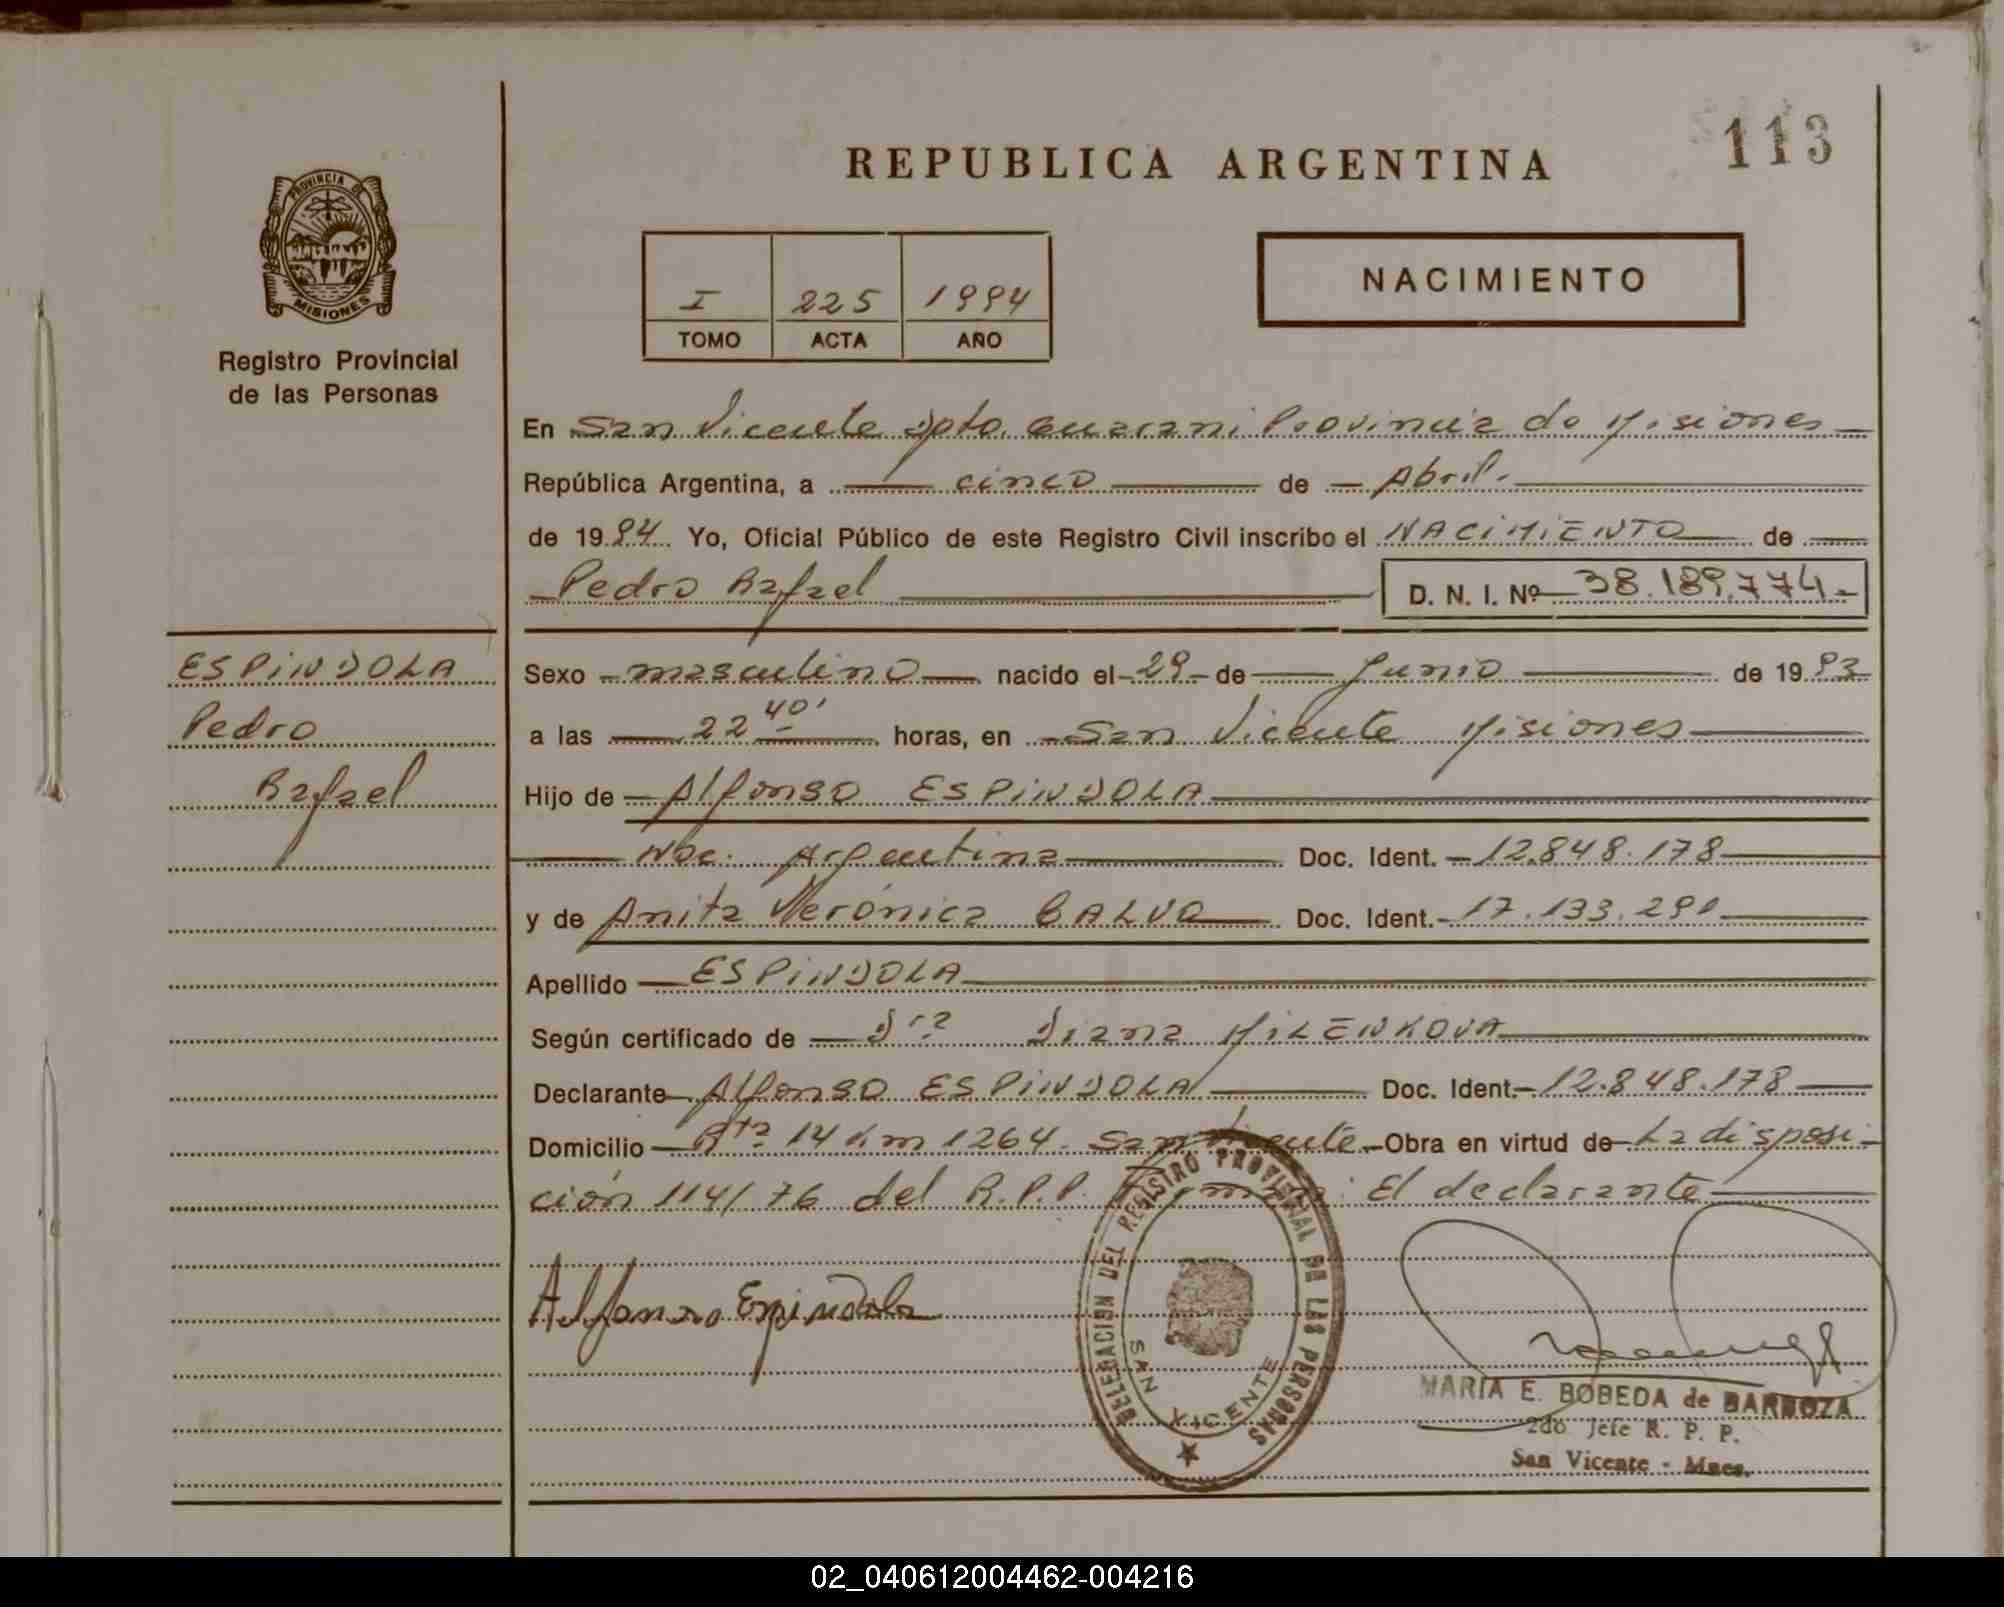 113
REPUBLICA ARGENTINA
PROVINCIA DE
MISIONES
Registro Provincial
de las Personas
I 225 1994
TOMO ACTA AÑO
NACIMIENTO
En San Vicente Dpto. Guarani Provincia de Misiones
República Argentina, a cinco de Abril.
de 1994. Yo, Oficial Público de este Registro Civil inscribo el NACIMIENTO de
Pedro Rafael D. N. I. Nº 38.189.774.-
ESPINDOLA
Pedro
Rafael
Sexo masculino nacido el 29 de Junio de 1993
a las 22 40' horas, en San Vicente Misiones
Hijo de Alfonso ESPINDOLA
Nac. Argentina Doc. Ident. 12.848.178
y de Anita Verónica CALVO Doc. Ident. 17.133.290
Apellido ESPINDOLA
Según certificado de Dra Diana MILENKOVA
Declarante Alfonso ESPINDOLA Doc. Ident. 12.848.178
Domicilio Rta 14 Km 1264. San Vicente Obra en virtud de La disposi-
ción 114/76 del R.P.P. El declarante
Alfonso Espindola
DELEGACION DEL REGISTRO PROVINCIAL DE LAS PERSONAS
SAN VICENTE
MARIA E. BOBEDA de BARBOZA
2do Jefe R. P. P.
San Vicente - Mnes.
02_040612004462-004216